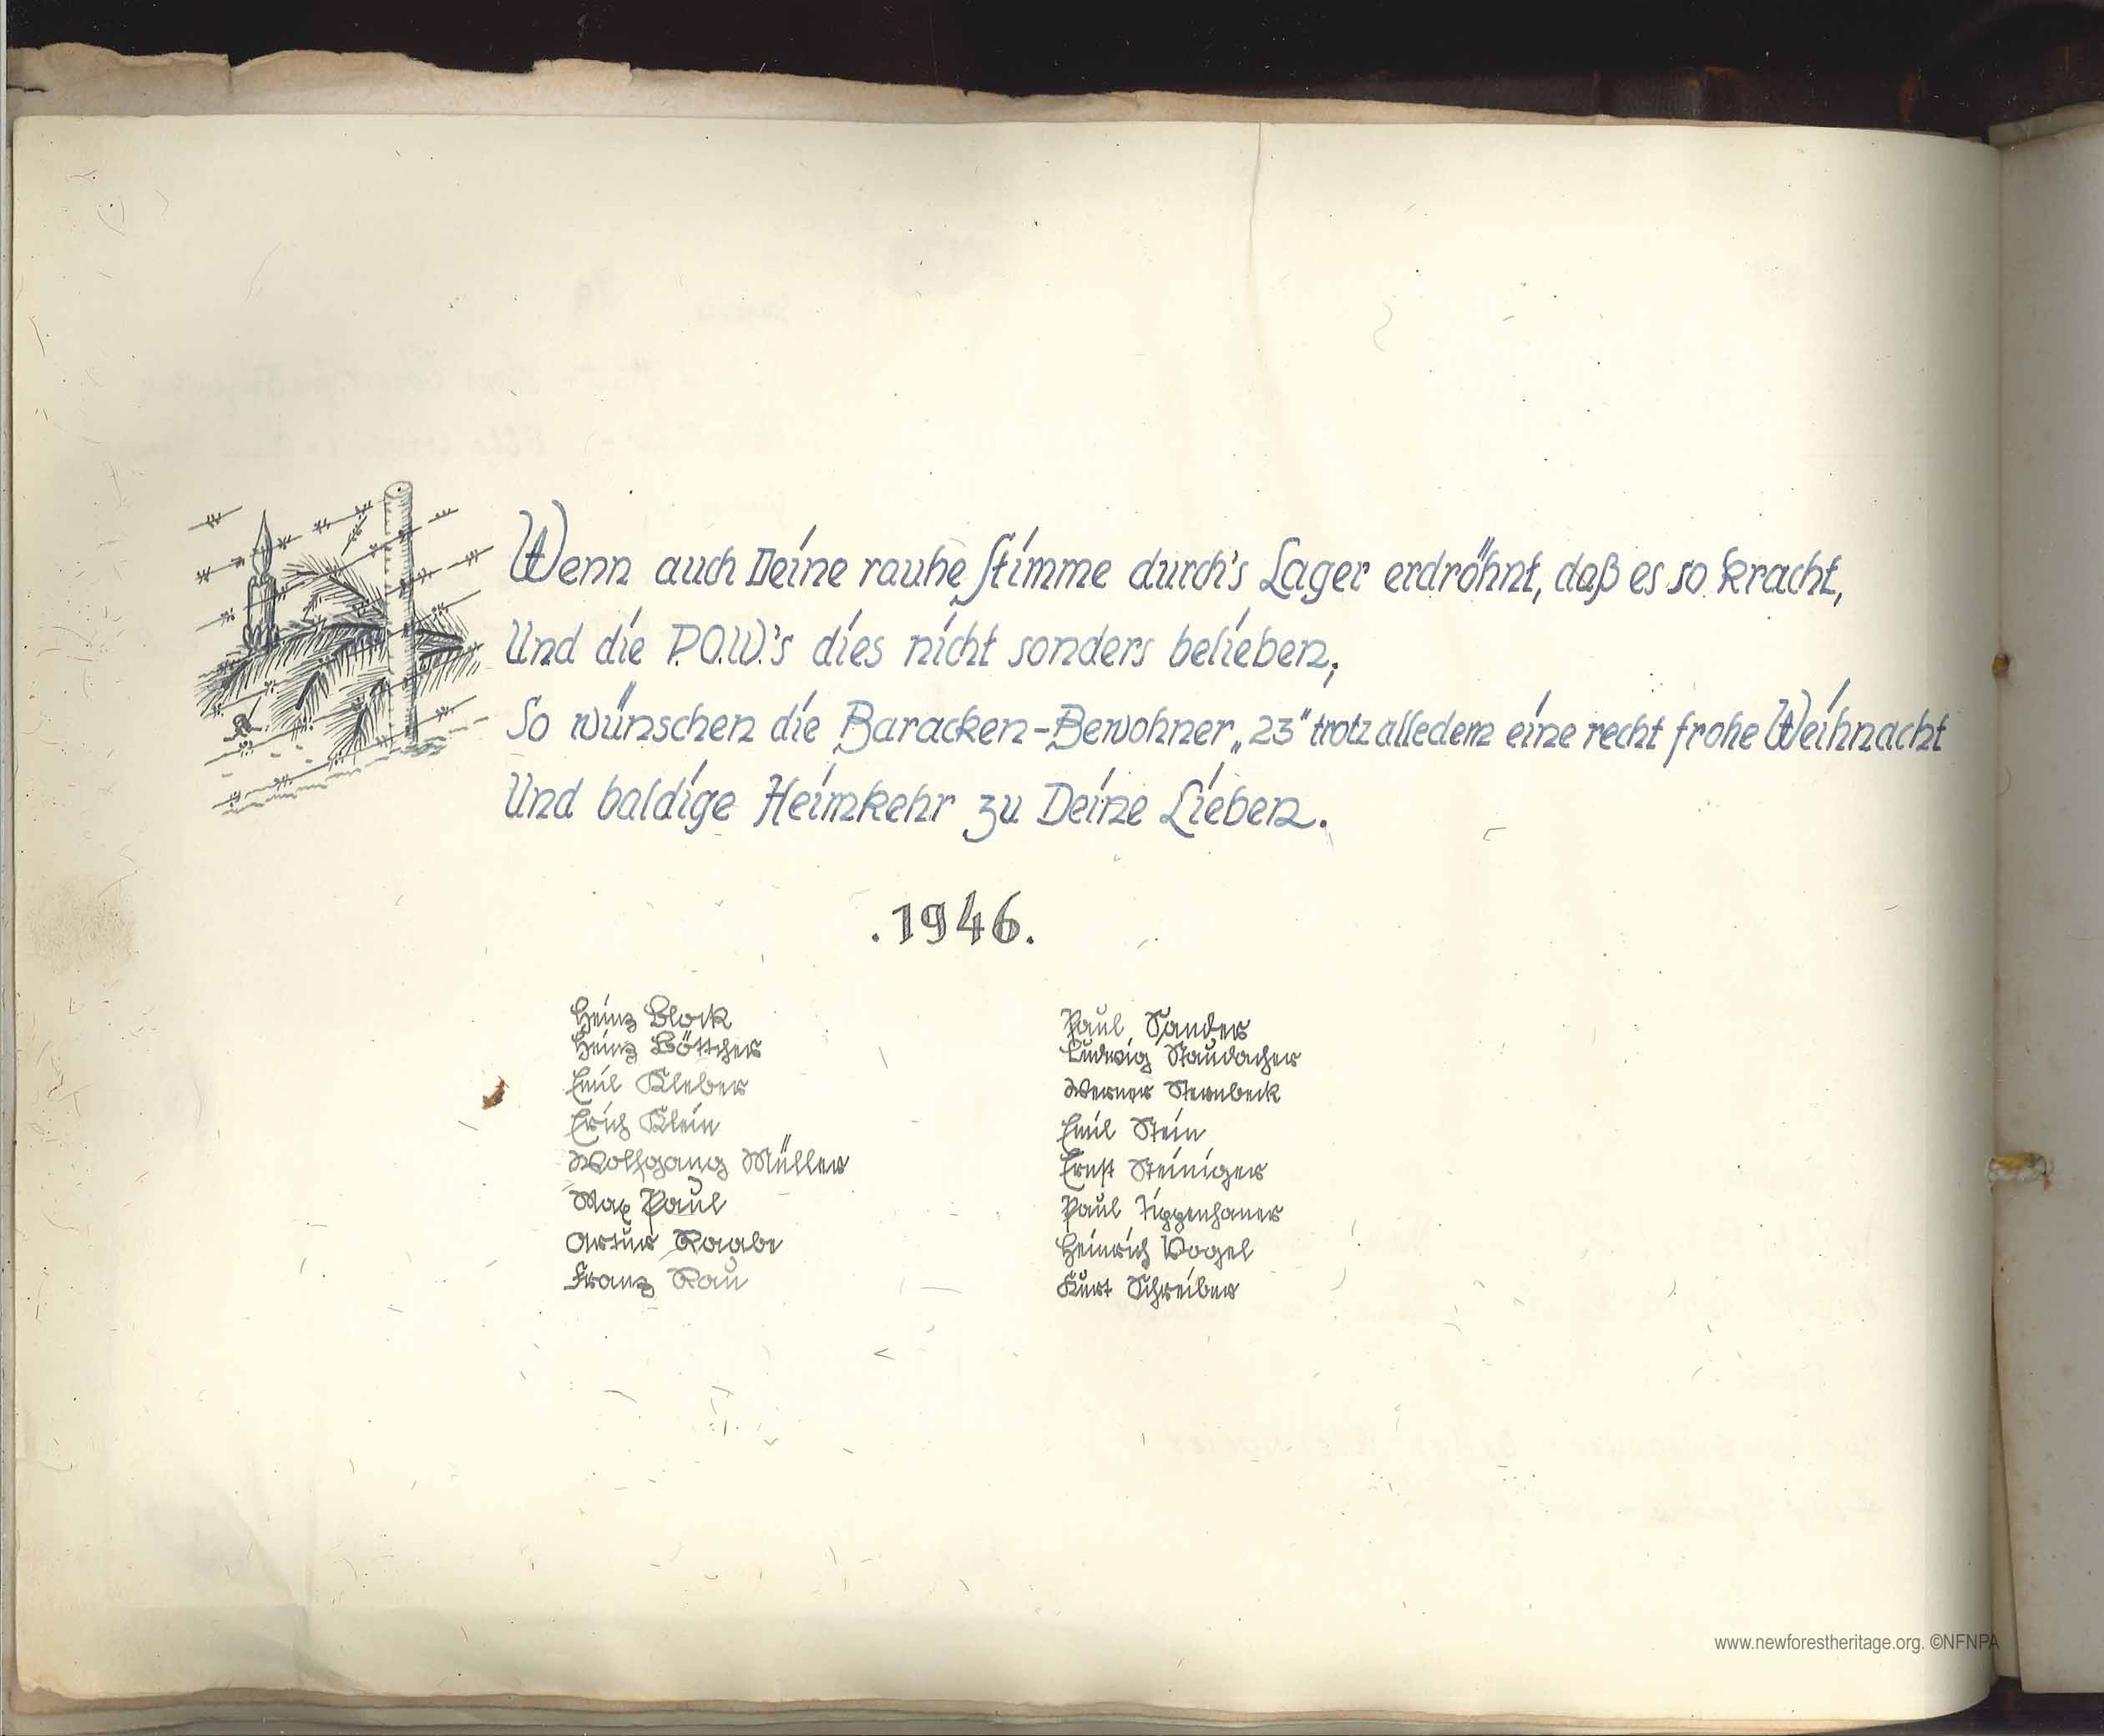 Wenn auch Deine rauhe Stimme durch's Lager erdröhnt, daß es so kracht,
Und die P.O.W.'s dies nicht sonders belieben,
So wünschen die Baracken-Bewohner „23" trotz alledem eine recht frohe Weihnacht
Und baldige Heimkehr zu Deine Lieben.
.1946.
Heinz Block
Heinz Böttcher
Emil Kleber
Erich Klein
Wolfgang Müller
Max Paul
Artur Raabe
Franz Rau
Paul Sander
Ludwig Staudacher
Werner Sternbeck
Emil Stein
Ernst Steiniger
Paul Tippenhauer
Heinrich Vogel
Kurt Schreiber
www.newforestheritage.org. ©NFNPA